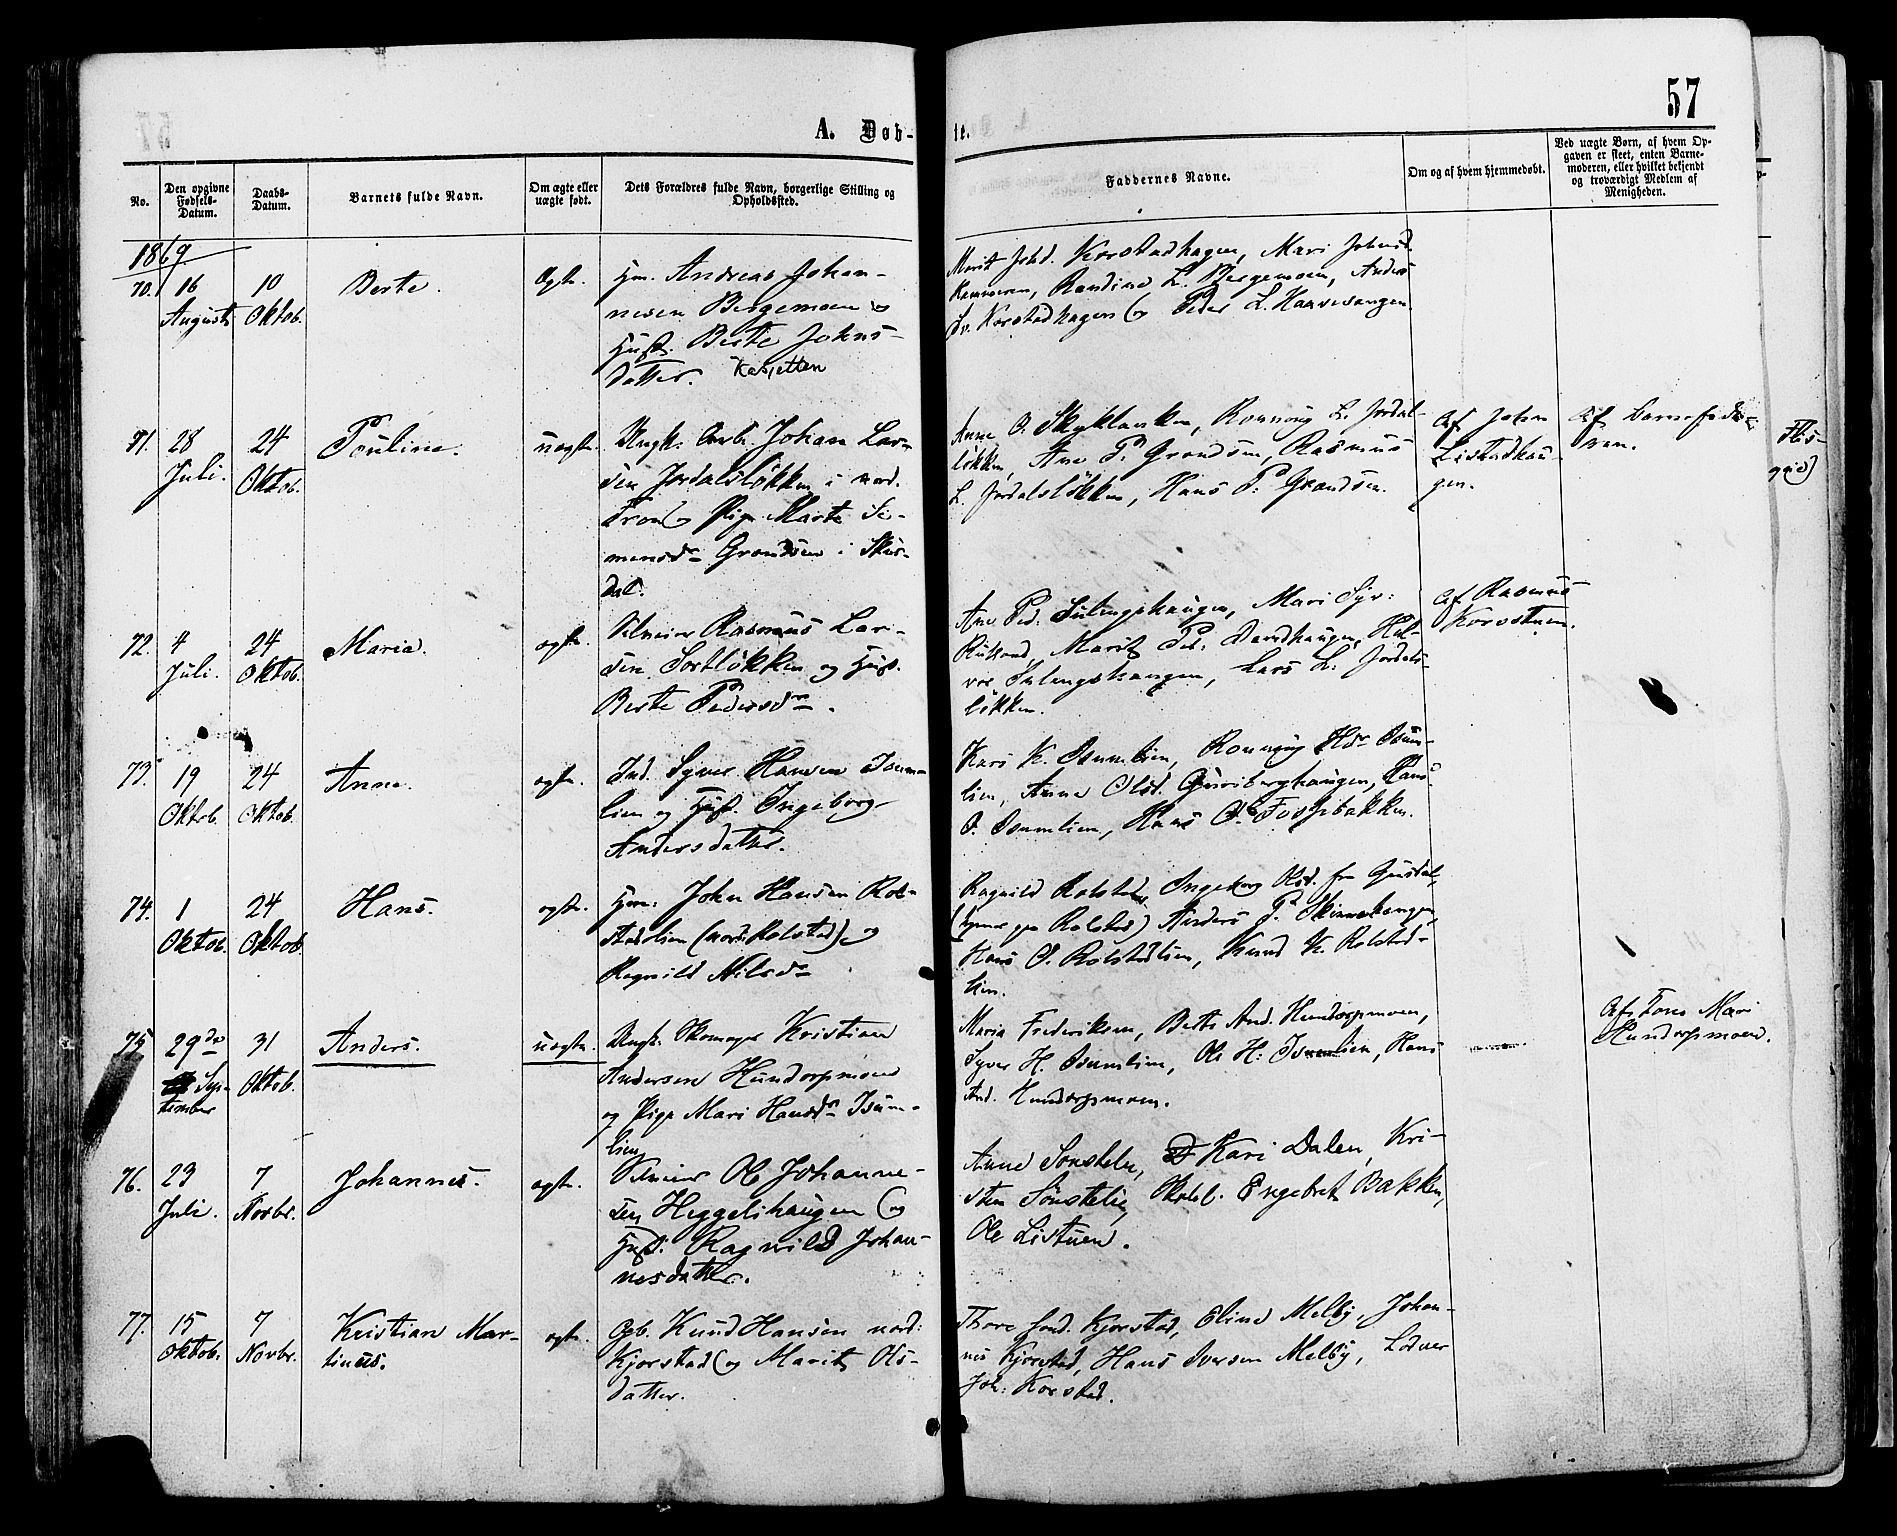 57
A. Døb-
te.
No.
Den opgivne Fødsels-Datum.
Daabs-Datum.
Barnets fulde Navn.
Om ægte eller uægte født.
Dets Forældres fulde Navn, borgerlige Stilling og Opholdssted.
Faddernes Navne.
Om og af hvem hjemmedøbt.
Ved uægte Børn, af hvem Op-
gaven er skeet, enten Barne-
moderen, eller hvilket bekjendt
og troværdigt Medlem af
Menigheden.
1869
70. 16 August 10 Oktob. Berte. Ægte.
Hm. Andreas Johan-
nesen Bergemoen og
Hust. Berte Johns-
datter.
Marit Johd. Korstadhagen, Mari Johnsd.
Randine L. Bergemoen, Anders
Korstadhagen og Peder L. Haavesangen.
71. 28 Juli. 24 Oktob. Pouline. uægte.
Ungk. Arb. Johan Lar-
sen Jordalsløkken i nord.
Fron og Pige Marte Si-
mensdr Grandsen i Skus-
dal.
Anne O. Rønnøug L. Jordal-
løkken, Ane P. Grandsen, Rasmus
L. Jordalsløkken, Hans P. Grandsen.
Af Johan
Listadhau-
gen.
Af Barnefade-
ren.
72. 4 Juli. 24 Oktob. Maria. ægte.
Selveier Rasmus Lar-
sen Sortløkken og Hust.
Berte Pedersdr.
Ane Ped. Sulengshaugen, Mari Syv:
Marit Ped. Hal-
vor Sulengshaugen, Lars L. Jordals-
løkken.
Af Rasmus
73. 19 Oktob. 24 Oktob. Anne. ægte.
Ind. Syver Hansen Isum-
lien og Hust. Ingeborg
Andersdatter.
Kari K. Isumlien, Rønnøug Hdr Isum-
lien, Anne Olsd. Guribergshaugen, Hans
O. Isumlien, Hans O. Fossbakken.
74. 1 Oktob. 24 Oktob. Hans. ægte.
Hm. John Hansen Rol-
stadlien (nord. Rolstad) og
Ragnild Nilsdr
Ragnild Rolstad, Ingeborg Olsd. fra Gusdal,
Rolstad) Anders P. Skinnerhaugen,
Hans O. Rolstadlien, Knud K. Rolstad-
lien.
75. 29de September 31 Oktob. Anders. uægte.
Ungk. Skomager Kristian
Andersen Hundorpmoen
og Pige Mari Hansdr Isum-
lien
Maria Frederiksen, Berte And. Hundorpmoen,
Syver H. Isumlien, Ole H. Isumlien, Hans
And. Hundorpmoen.
Mari
Hundorpmoen.
76. 23 Juli. 7 Novbr. Johannes. ægte.
Selveier Ole Johanne-
sen Heggelshaugen og
Hust. Ragnild Johan-
nesdatter.
Anne Sønstelie, Kari Dalen, Kri-
sten Sønstelie, Skolel. Engebret Bakken,
Ole Listuen.
77. 15 Oktob. 7 Novbr. Kristian Mar-
tinus. ægte.
Gb. Knud Hansen nord:
Kjorstad og Marit Ols-
datter.
Thore Kjorstad, Eline Melby, Johan-
nes Kjorstad, Hans Iversen Melby,
Joh. Korstad.